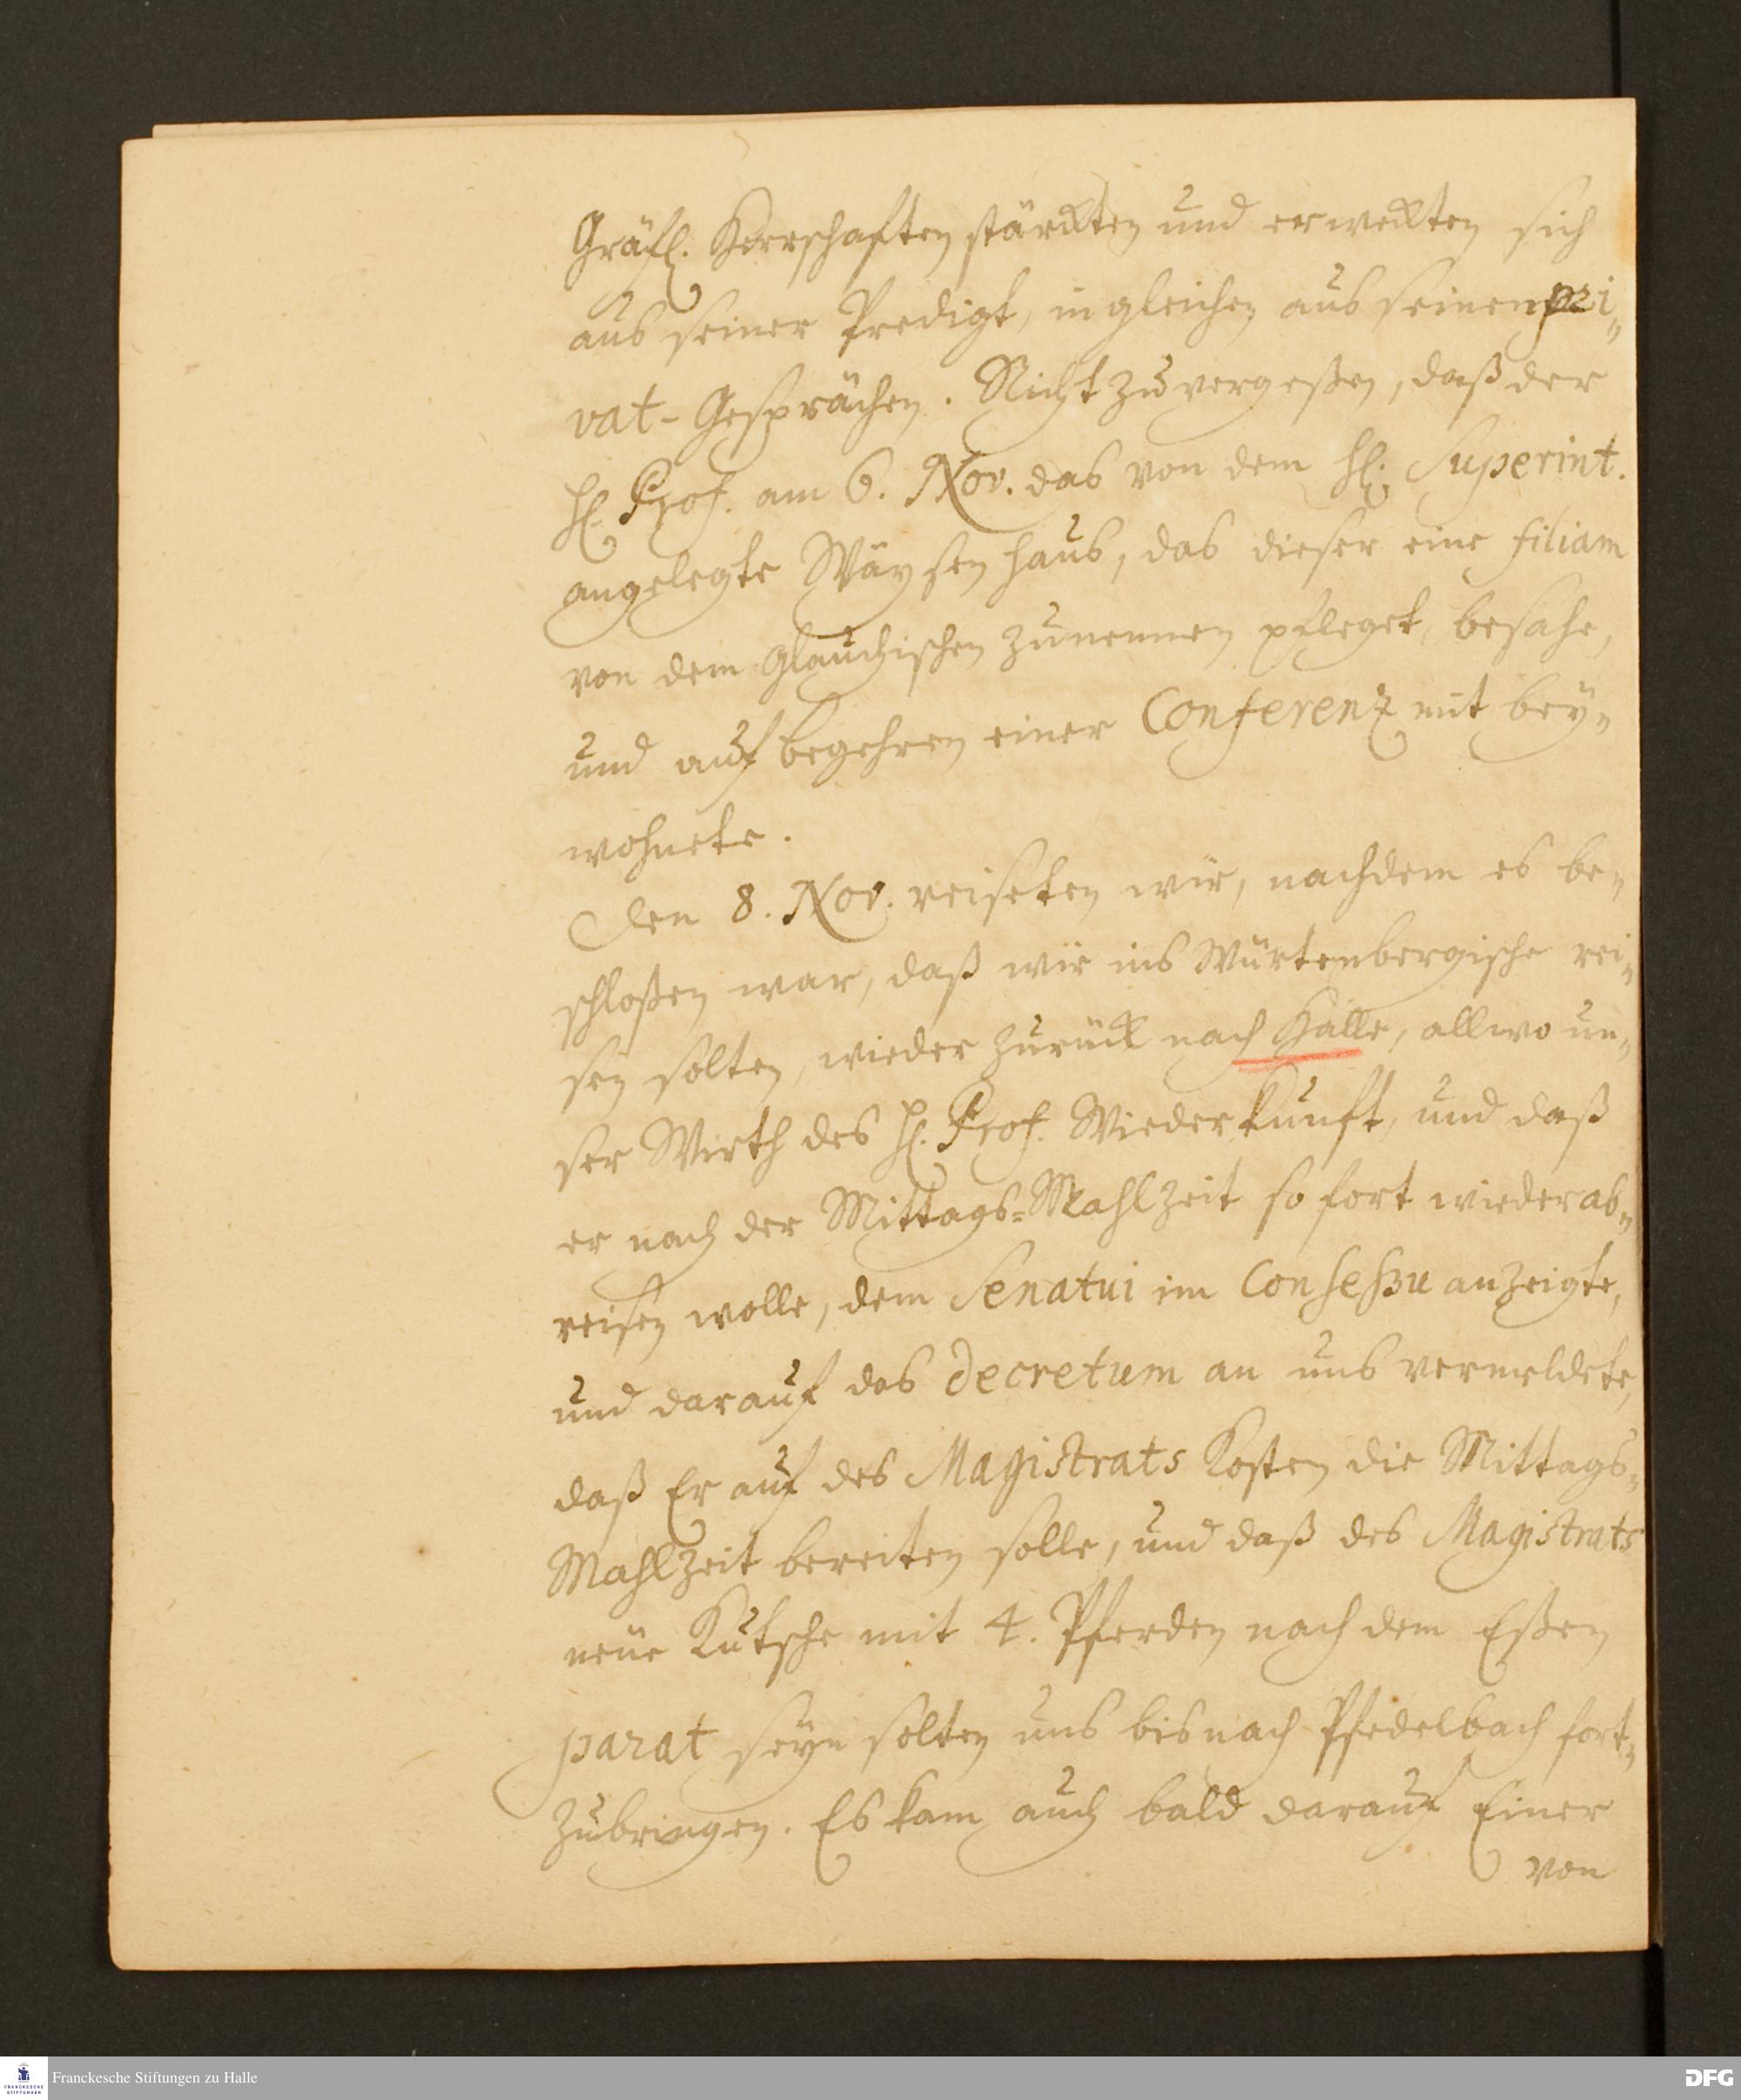 Gräfl. Herrschaften stärckten und erweckten sich
aus seiner Predigt, ingleichen aus seinen pri„
vat- Gesprächen. Nicht zu vergeßen, daß der
H. Prof. am 6. Nov. das von dem H. Superint.
angelegte Wäysenhaus, das dieser eine filiam
von dem Glauchischen zunennen pfleget, besahe,
und auf begehren einer Conferenz mit bey„
wohnete.
Den 8. Nov. reiseten wir, nachdem es be„
schloßen war, daß wir ins Würtenbergische rei„
sen solten, wieder zurück nach Halle, allwo un„
ser Wirth des H. Prof. Wiederkunft, und daß
er nach der Mittags-Mahlzeit so fort wieder ab„
reisen wolle, dem Senatui im Consessu anzeigte,
und darauf das Decretum an uns vermeldete,
daß Er auf des Magistrats Kosten die Mittags„
Mahlzeit bereiten solle, und daß des Magistrats
neue Kutsche mit 4. Pferden nach dem Eßen
parat seyn solten uns bis nach Pfedelbach fort„
zubringen. Es kam auch bald darauf Einer
von
Franckesche Stiftungen zu Halle
FRANCKESCHE STIFTUNGEN
DFG